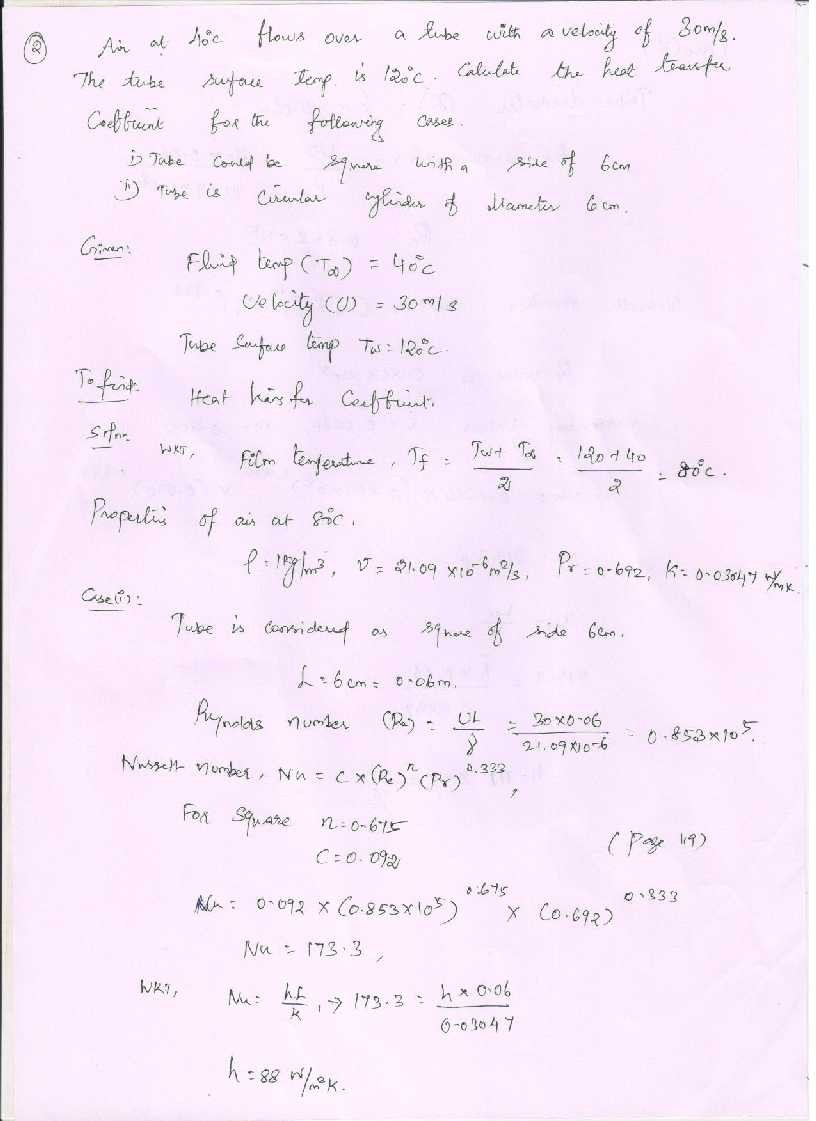 ② Air at 40°C flows over a tube with a velocity of 30m/s.
The tube surface temp. is 120°C. Calculate the heat transfer
Coefficient for the following cases.
i) Tube could be square with a side of 6cm
ii) Tube is circular cylinder of diameter 6cm.
Given:
Fluid temp (T∞) = 40°C
Velocity (U) = 30m/s
Tube Surface temp Tw = 120°C.
To find:
Heat transfer Coefficient.
Soln:
WKT, Film temperature, Tf = (Tw + T∞)/2 = (120 + 40)/2 = 80°C.
Properties of air at 80°C.
ρ = 1kg/m³, ν = 21.09 x10⁻⁶m²/s, Pr = 0.692, K = 0.03047 W/mK.
Case(i):
Tube is considered as square of side 6cm.
L = 6cm = 0.06m.
Reynolds number (Re) = UL/γ = 30x0.06/21.09x10-6 = 0.853x10⁵.
Nusselt number, Nu = C x (Re)ⁿ (Pr)^0.333,
For Square n=0.675
C=0.092
(Page 119)
Nu = 0.092 x (0.853x10⁵)^0.675 x (0.692)^0.333
Nu = 173.3,
WKT, Nu = hL/k, → 173.3 = h x 0.06/0.03047
h = 88 W/m²K.